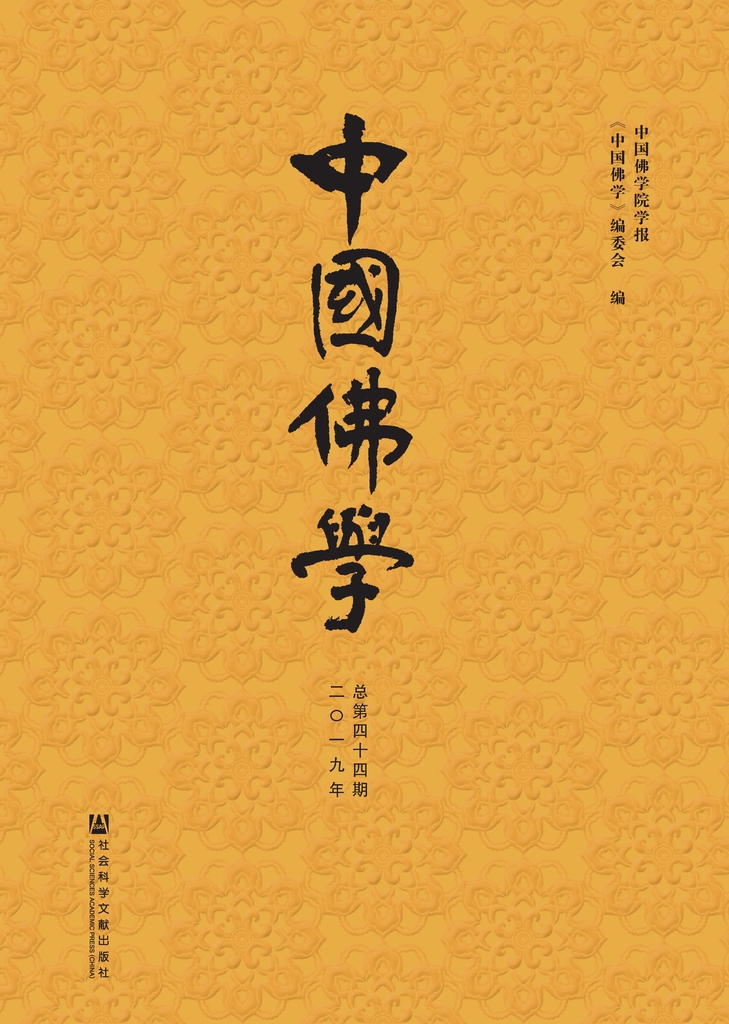 中国佛学院学报
《中国佛学》编委会 编
中國佛學
总第四十四期
二〇一九年
SSAP
社会科学文献出版社
SOCIAL SCIENCES ACADEMIC PRESS (CHINA)